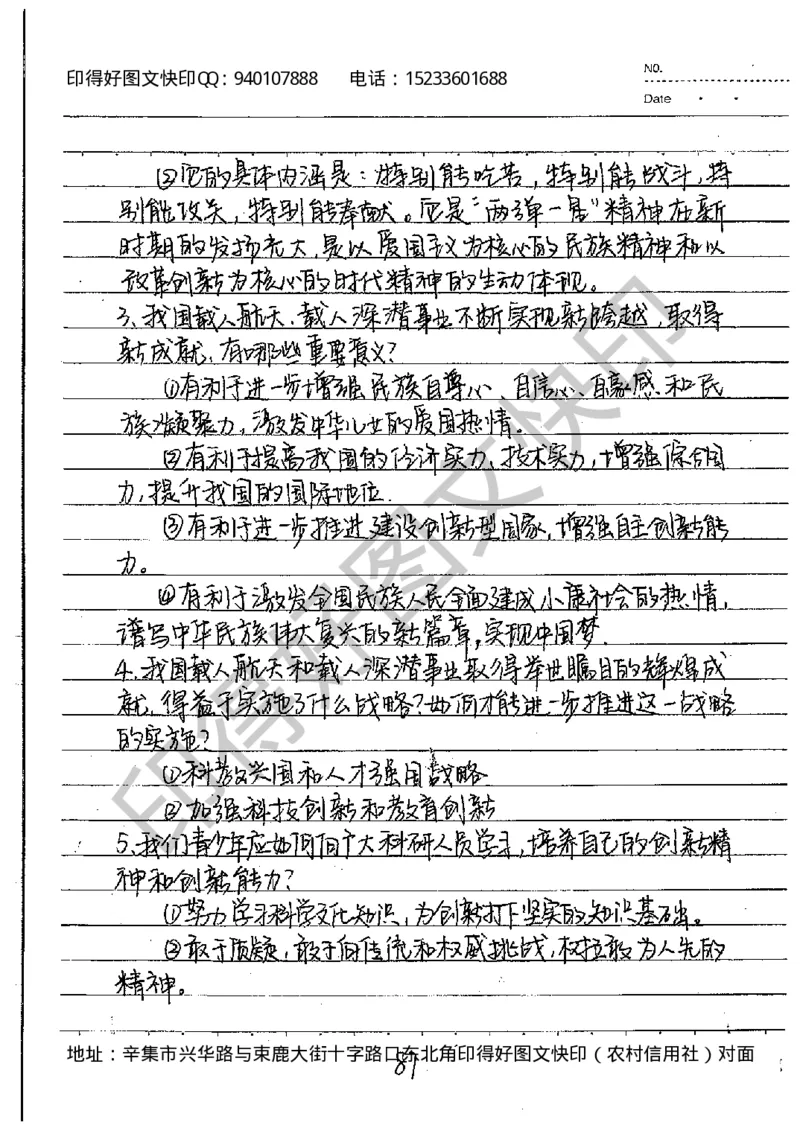 印得好图文快印QQ：940107888 电话：15233601688
NO.
Date
②它的具体内涵是：特别能吃苦，特别能战斗，特
别能攻关，特别能奉献。它是“两弹一星”精神在新
时期的发扬光大，是以爱国主义为核心的民族精神和以
改革创新为核心的时代精神的生动体现。
3、我国载人航天、载人深潜事业不断实现新跨越，取得
新成就，有哪些重要意义？
①有利于进一步增强民族自尊心、自信心、自豪感和民
族凝聚力，激发中华儿女的爱国热情。
②有利于提高我国的经济实力，技术实力，增强综合国
力，提升我国的国际地位.
③有利于进一步推进建设创新型国家，增强自主创新能
力。
④有利于激发全国民族人民全面建成小康社会的热情，
谱写中华民族伟大复兴的新篇章，实现中国梦.
4、我国载人航天和载人深潜事业取得举世瞩目的辉煌成
就，得益于实施了什么战略？如何才能进一步推进这一战略
的实施？
①科教兴国和人才强国战略
②加强科技创新和教育创新
5、我们青少年应如何向广大科研人员学习，培养自己的创新精
神和创新能力？
①努力学习科学文化知识，为创新打下坚实的知识基础。
②敢于质疑，敢于向传统和权威挑战，树立敢为人先的
精神。
地址：辛集市兴华路与束鹿大街十字路口东北角印得好图文快印（农村信用社）对面
87
印得好图文快印